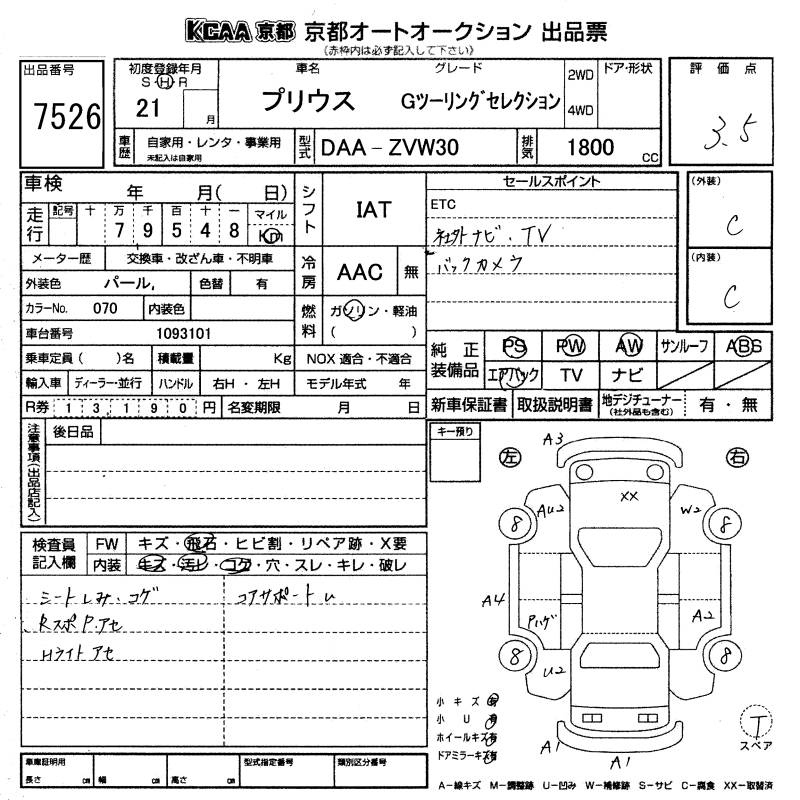 KCAA 京都 京都オートオークション 出品票
(赤枠内は必ず記入して下さい)
出品番号
7526
初度登録年月
S・H・R
21 月
車名
プリウス
グレード
Gツーリングセレクション
2WD
4WD
ドア・形状
車歴
自家用・レンタ・事業用
未記入は自家用
型式
DAA-ZVW30
排気
1800 cc
評価点
3.5
車検 年 月( 日)
走行
記号 十 万 千 百 十 一 マイル
7 9 5 4 8 Km
メーター歴 交換車・改ざん車・不明車
外装色 パール, 色替 有
カラーNo. 070 内装色
車台番号 1093101
乗車定員( )名 積載量 Kg
輸入車 ディーラー・並行 ハンドル 右H・左H
R券 13,190円 名変期限 月 日
シフト
IAT
冷房
AAC 無
燃料
ガソリン・軽油
( )
NOX 適合・不適合
モデル年式 年
セールスポイント
ETC
社外ナビ・TV
バックカメラ
(外装)
C
(内装)
C
純正装備品
PS PW AW サンルーフ ABS
エアバック TV ナビ
新車保証書 取扱説明書 地デジチューナー
(社外品も含む)
有・無
注意事項(出品店記入)
後日品
キー預り
検査員記入欄
FW キズ・飛石・ヒビ割・リペア跡・X要
内装 キズ・汚レ・コゲ・穴・スレ・キレ・破レ
シートしみ・コゲ
RスポP.アセ
Hライトアセ
コアサポートU
左
右
A3
XX
AU2
W2
8
8
A4
Pハゲ
A2
8
8
U2
A1
A1
小キズ 有
小U 有
ホイールキズ 有
ドアミラーキズ 有
T
スペア
車庫証明用
長さ cm 幅 cm 高さ cm
型式指定番号
類別区分番号
A-線キズ M-調整跡 U-凹み W-補修跡 S-サビ C-腐食 XX-取替済